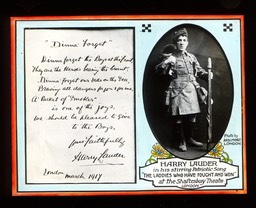 "Dinna Forget"
Dinna forget the Boys at the Front
They are the Heroes bearing the brunt,
Dinna forget our lads on the Sea,
Braving all dangers for you & for me.
A Packet of "Smokes"
is one of the joys,
We should be pleased to give
to the Boys.
Yours faithfully
Harry Lauder
London
March 1917
Photo by
LONDON.
HARRY LAUDER
in his stirring Patriotic Song
"THE LADDIES WHO HAVE FOUGHT AND WON"
at the Shaftesbury Theatre
LONDON